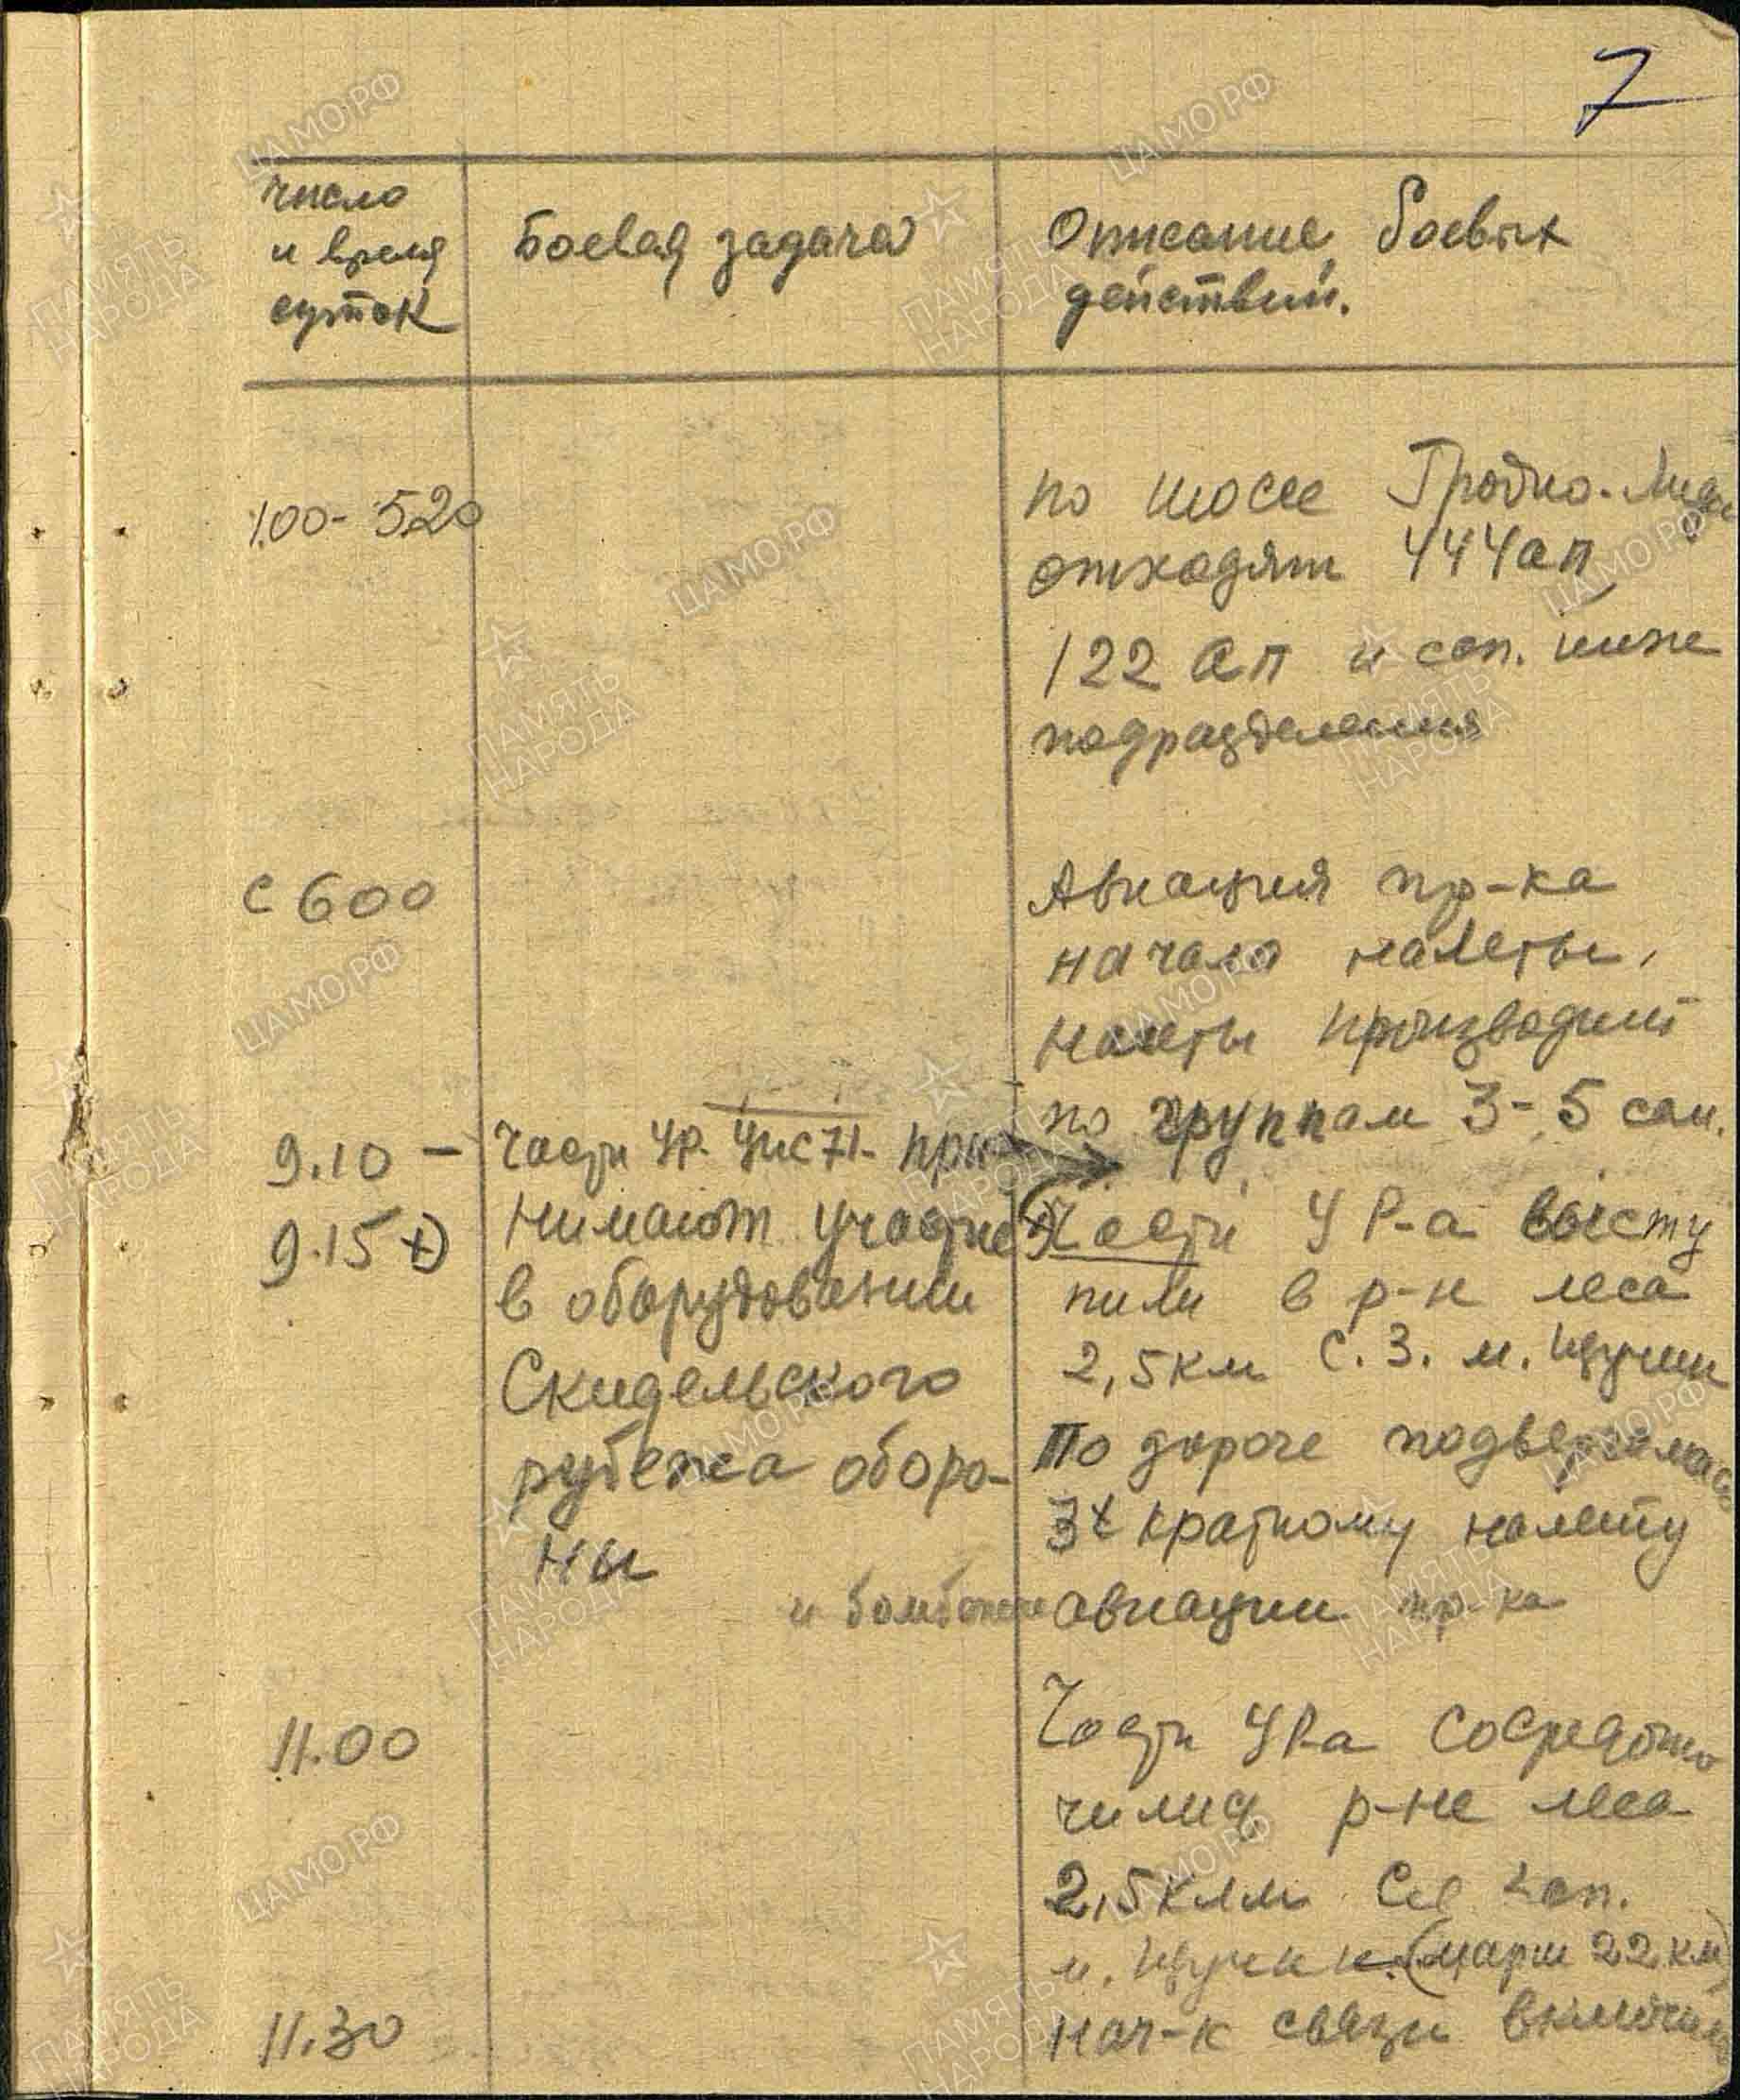 7
число
и время
суток
Боевая задача
Описание боевых
действий.
1.00 - 520
по шоссе Гродно-Лида
отходят 444 ап
122 ап и сап. инже
подразделения
с 600
Авиация пр-ка
начала налеты,
налеты производит
по группам 3-5 сам.
9.10 -
9.15 +)
Части УР. при
нимают участие
в оборудовании
Скидельского
рубежа оборо-
ны
+) Части УР-а высту
пили в р-н леса
2,5 км С.З. м. Щучин
По дороге подвергались
3х кратному налету
и бомбежке авиации пр-ка
11.00
Части УР-а сосредото
чились р-не леса
2,5 клм Сев зап.
м. Щучин (марш 22 км)
11.30
нач-к связи включил
ЦАМО.РФ
ПАМЯТЬ
НАРОДА